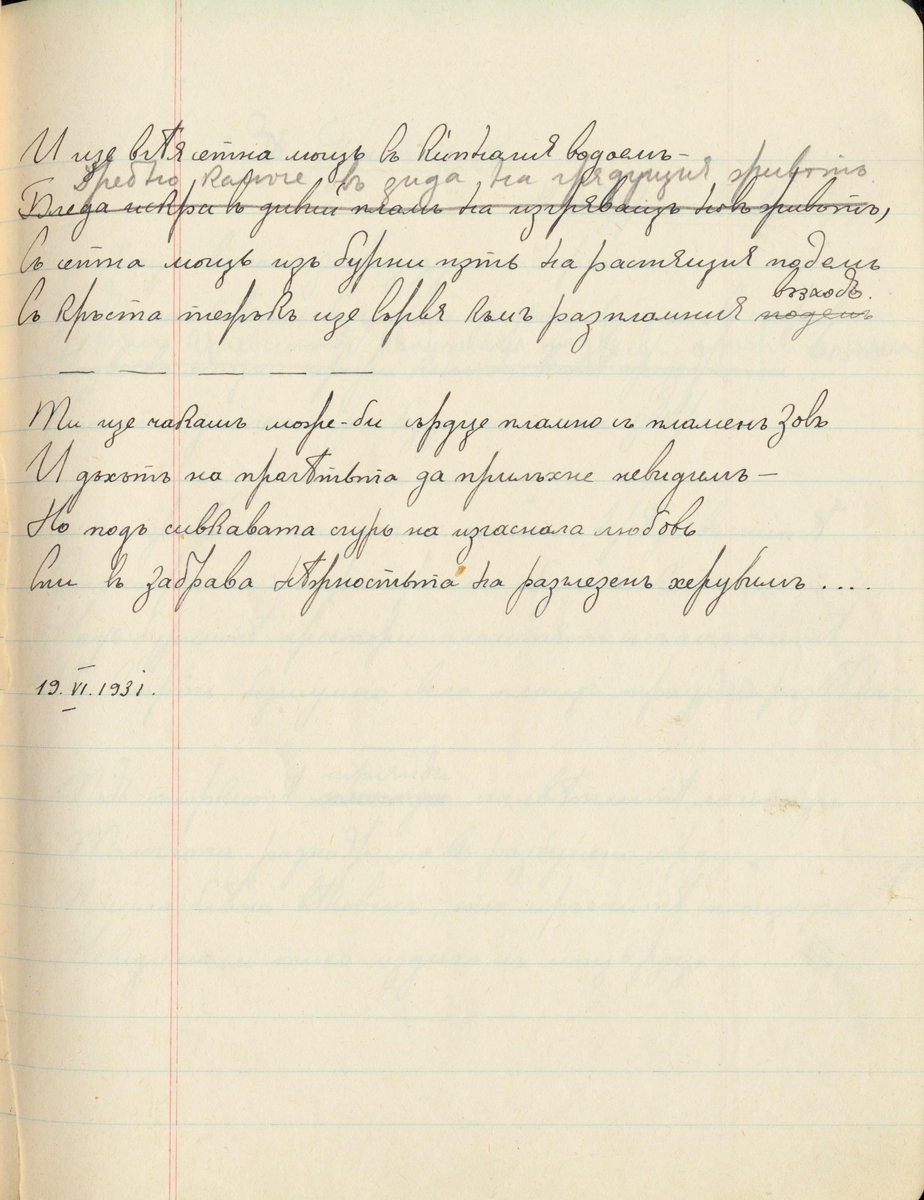 И ще влѣя сетна мощь въ кипналия водоемъ –
Дребно камъче въ зида на грядущия животъ
Бледа искра въ дивни пламъ на изгряващъ новъ животъ,
Съ сетна мощь изъ бурни пѫть на растящия подемъ
Съ кръста тежъкъ ще вървя къмъ разпламния подемъ
възходъ.
— — — — —
Ти ще чакашъ може-би сърдце пламно съ пламенъ зовъ
И дъхътъ на пролѣтьта да прилъхне невидимъ –
Но подъ сивкавата сгурь на изгаснала любовь
Спи въ забрава нѣрностьта на разлезенъ херувимъ ....
19.VI.1931.